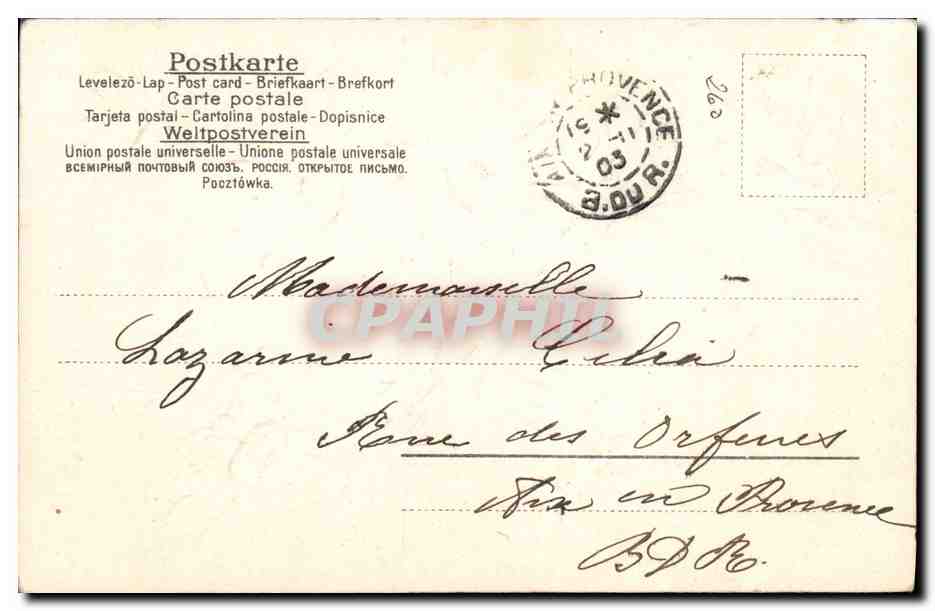 Postkarte
Levelezō-Lap - Post card - Briefkaart - Brefkort
Carte postale
Tarjeta postal - Cartolina postale - Dopisnice
Weltpostverein
Union postale universelle - Unione postale universale
ВСЕМІРНЫЙ ПОЧТОВЫЙ СОЮЗЪ. РОССІЯ. ОТКРЫТОЕ ПИСЬМО.
Pocztówka.
PROVENCE
03
B. DU R.
260
Mademoiselle
CPAPHIL
Lazarine
Rue des Orfevres
Aix en Provence
BDR.